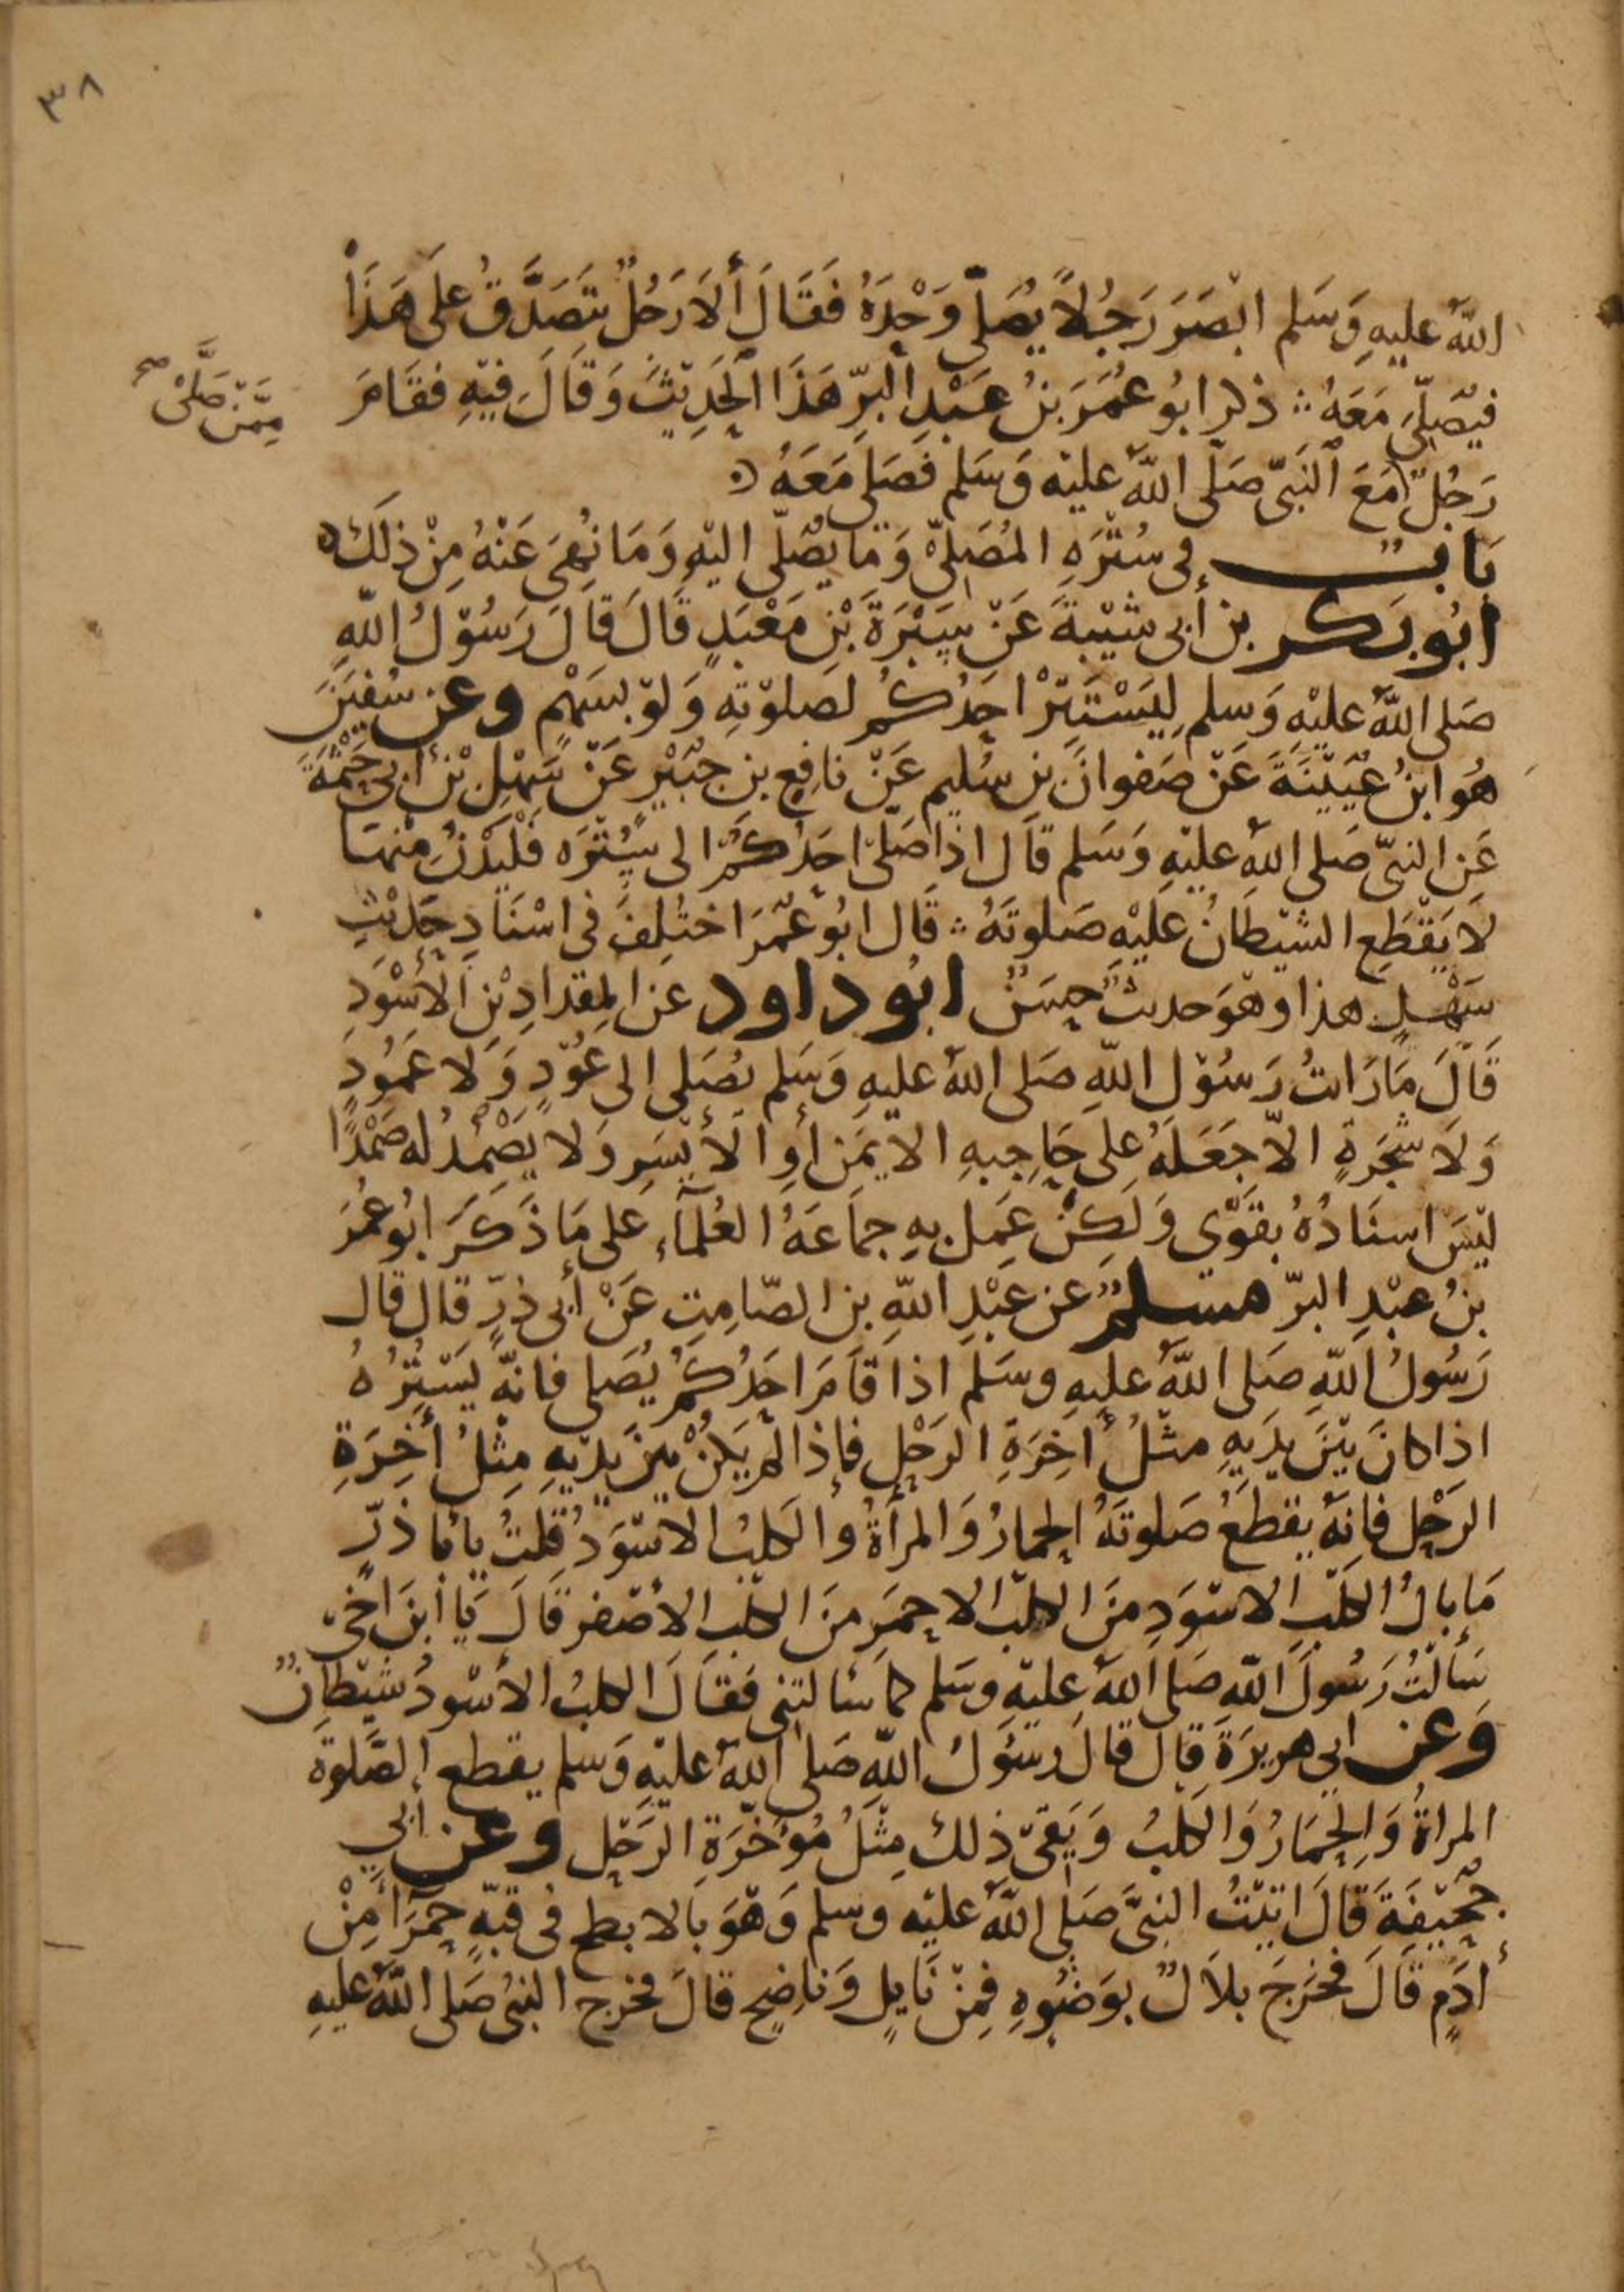 ٣٨
الله عليه وَسَلم ابْصَرَ رَجُلاً يُصَلّي وَحْدَهُ فَقَالَ أَلَا رَجُلٌ يَتَصَدَّقُ عَلَى هَذَا
فيُصَلّىَ مَعَهُ ؞ ذكر ابُو عُمَرَ بنُ عَبْدِ البرِّ هَذَا الْحَدِيْثَ وَقَالَ فِيْهِ فقَامَ
مِمَّنْ صَلَّىْ صح
رَجُلٌ مَعَ النَّبِىِّ صَلّى اللهُ عليْه وَسَلم فَصَلى مَعَهُ
بَابٌ فى سُتْرَهِ المُصَلِّىْ وَمَا يُصَلّى اليْهِ وَمَا نُهِىَ عَنْهُ مِنْ ذلَكَ
ابُو بَكر بن أبى شَيْبةَ عَنْ سَبْرَةَ بْنِ مَعْبَدٍ قَالَ قَالَ رَسُوْلُ اللهِ
صَلى اللهُ عليْهِ وَسلم لِيَسْتَتِرْ احَدُكُم لصَلوْتِهِ وَلوْ بسَهْمٍ وعن سُفيٰنَ
هُو ابنُ عُيَيْنَةَ عَنْ صَفوانَ بن سُليم عَنْ نافِعٍ بن جُبَيْرٍ عَنْ سَهْلِ بْنْ أبِى حَثْمَةَ
عَنِ النبىّ صَلى اللهُ عليْهِ وَسَلم قَال اذَا صَلّىْ احَدُكمْ الى سُتْرَه فَلْيَدْنُ مِنْهَا
لَا يَقْطَعِ الشيْطَانُ عَلَيْهِ صَلوتَهُ ؞ قَال ابُو عُمَرَ اختُلِفَ فى اسْنَادِ حَدِيْثِ
سَهْلٍ هذا وهْوَ حديثٌ حسَنٌ ابُو داود عَن المِقدَادِ بْنِ الأسْوَدِ
قَالَ مَا رَايتُ رَسُوْل اللهِ صَلى اللهُ عليهِ وَسَلم يُصَلى الى عُوْدٍ وَلَا عَمُودٍ
وَلَا شَجَرةٍ الاّ جَعَلهُ على حَاجِبهِ الايْمَنِ أوِ الأيْسَرِ وَلا يَصْمُدُ له صَمْدًا
ليْسَ اسنَادُهُ بقَوّي وَلكِنْ عَمِل بهِ جماعَهُ العُلَمآءِ عَلى مَا ذَكَرَ ابُو عُمَرَ
بنُ عبْدِ البرّ مسلمٌ عن عَبْدِ اللهِ بن الصّامِتِ عَنْ أبى ذرٍّ قال قال
رَسُولُ اللهِ صَلى اللهُ عليهِ وسَلم اذا قامَ احَدُكُمْ يُصَلى فانهُ يَسْتُرُهُ
اذا كانَ بَيْنَ يدَيهِ مثْلُ أَخِرَةِ الرَحْل فإذا لم يَكنْ بينَ يديْهِ مِثْلُ أَخِرَةِ
الرَحْل فانهُ يقطَعُ صَلوتَهُ الحِمارُ وَالمرأةُ والكلبُ الاسْوَدُ قلتُ يا أبا ذرٍّ
مَا بالُ الكلبِ الاسْوَدِ منَ الكلبِ الاحمَرِ منَ الكلبِ الأصْفر قَالَ يَا ابنَ اخى
سَألتُ رَسُولَ اللهِ صَلى اللهُ عليْهِ وسَلم كما سَألتنى فقَالَ الكلبُ الأسْودُ شَيْطانٌ
وعن ابى هريرَةَ قال قالَ رسُولُ اللهِ صَلى اللهُ عليْهِ وَسلم يقطع الصَّلوةَ
المرأةُ وَالحِمَارُ وَالكلبُ وَيَقى ذلكَ مِثْلُ مُؤخرَةِ الرَحْل وعن أبي
جُحَيْفَةَ قَالَ اتيْتُ النبىَّ صَلى اللهُ عليْه وسلم وَهْوَ بالابطح فى قبّهٍ حمرَا مِنْ
أدَمٍ قَالَ فخَرَجَ بلاَلٌ بوَضُوءِهِ فمِنْ نَايلٍ وَنَاضحٍ قالَ فخرج النبىُ صَلى اللهُ عليهِ